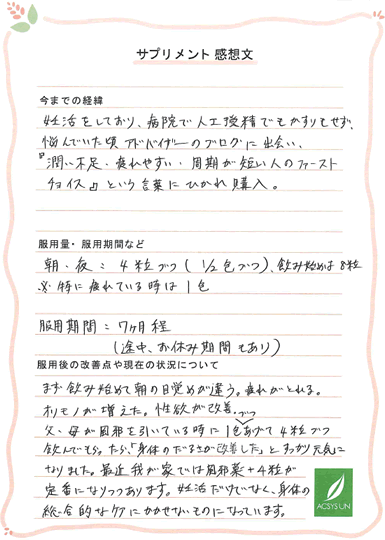 サプリメント 感想文
今までの経緯
妊活をしており、病院で人工授精でもかすりもせず、
悩んでいた頃アドバイザーのブログに出会い、
『潤い不足・疲れやすい・周期が短い人のファースト
チョイス』という言葉にひかれ購入。
服用量・服用期間など
朝・夜: 4粒づつ(1/2包づつ)、飲み始めは8粒
※ 特に疲れている時は1包
服用期間:7ヶ月程
(途中、お休み期間もあり)
服用後の改善点や現在の状況について
まず飲み始めて朝の目覚めが違う。疲れがとれる。
オリモノが増えた。性欲が改善。
父、母が風邪を引いている時に1包あけて4粒づつ
飲んでもらったら、「身体のだるさが改善した」とすっかり元気に
なりました。最近我が家では風邪薬+4粒が
定番になりつつあります。妊活だけでなく、身体の
総合的なケアにかかせないものになっています。
ACSYSUN